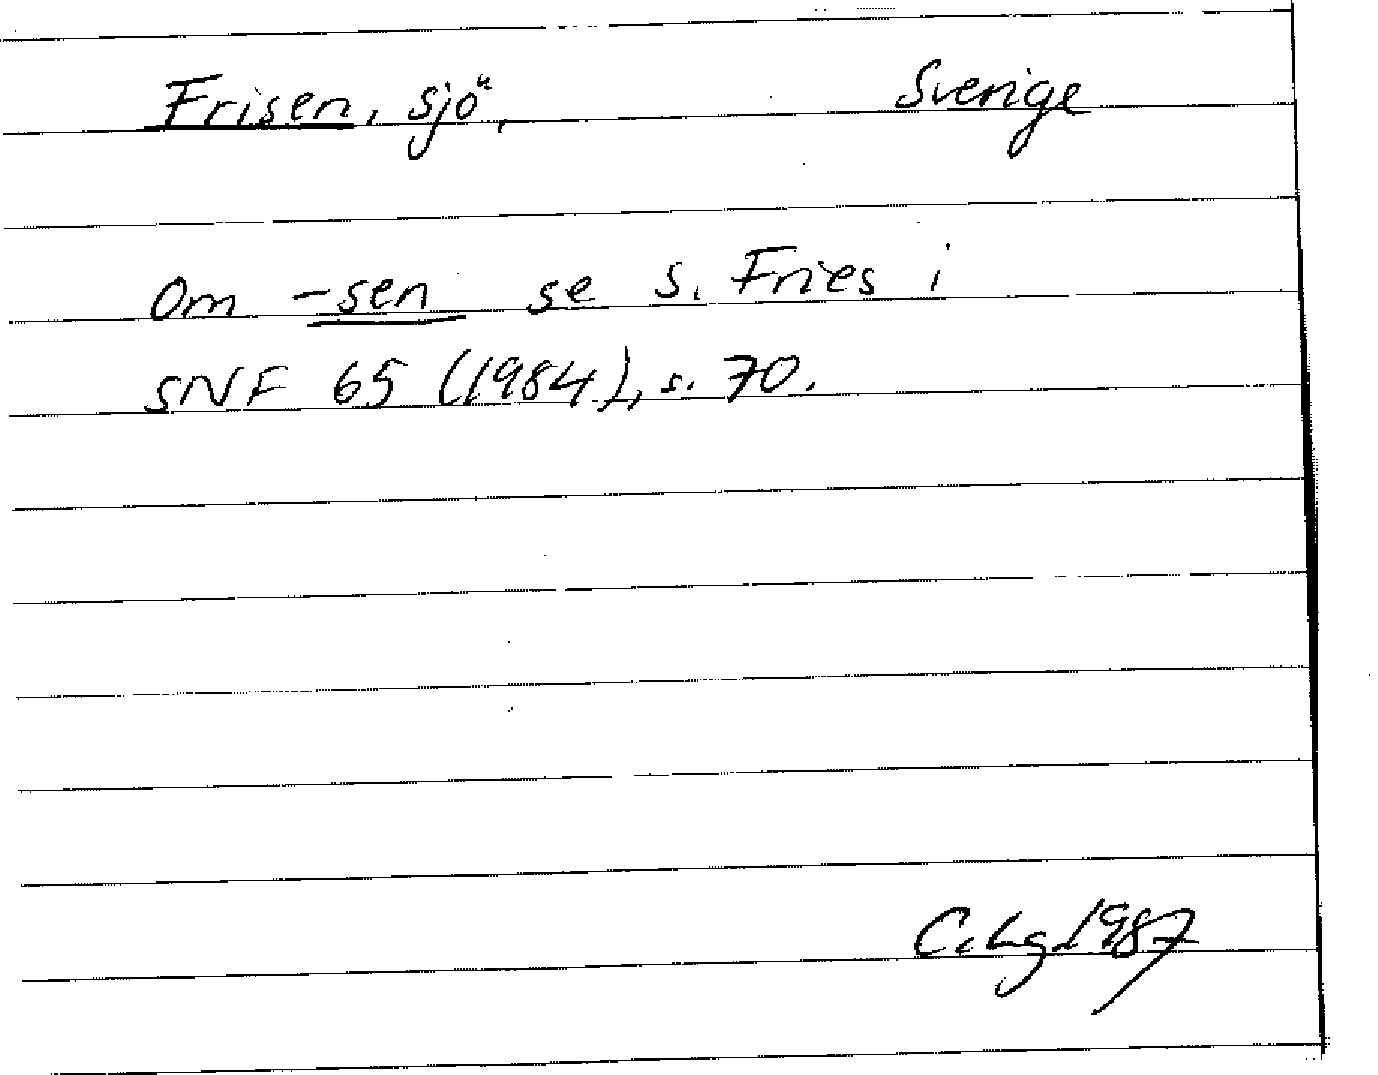 Frisen, sjö, Sverige
Om -sen se S. Fries i
SNF 65 (1984), s. 70.
C. Lg. 1987